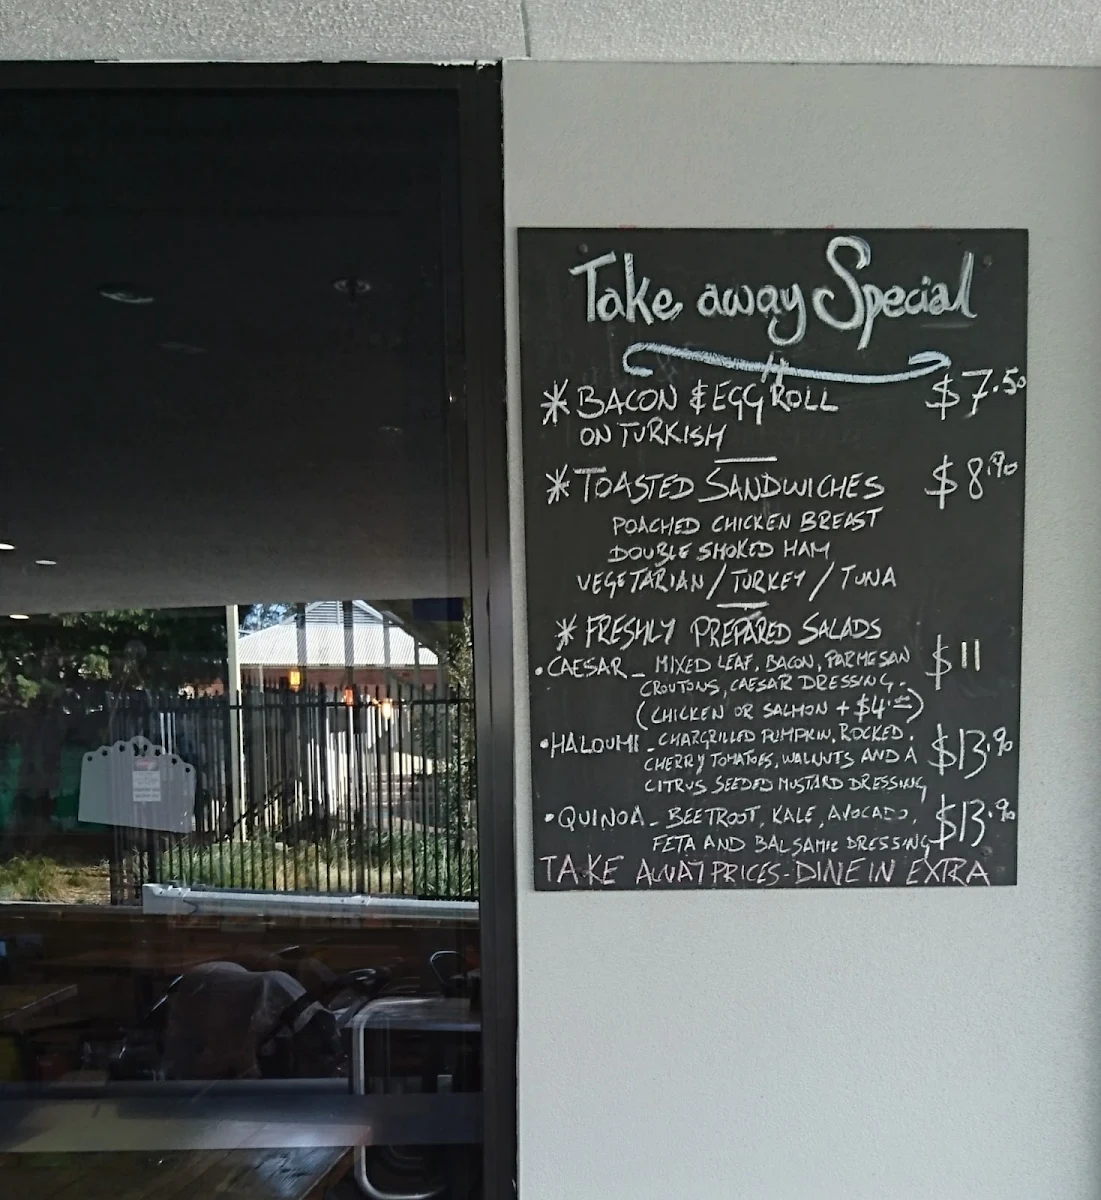 Take away Special
* BACON & EGG ROLL $7.50
ON TURKISH
* TOASTED SANDWICHES $8.90
POACHED CHICKEN BREAST
DOUBLE SMOKED HAM
VEGETARIAN / TURKEY / TUNA
* FRESHLY PREPARED SALADS
• CAESAR - MIXED LEAF, BACON, PARMESAN $11
CROUTONS, CAESAR DRESSING.
(CHICKEN OR SALMON + $4.00)
• HALOUMI - CHARGRILLED PUMPKIN, ROCKED, $13.90
CHERRY TOMATOES, WALNUTS AND A
CITRUS SEEDED MUSTARD DRESSING
• QUINOA - BEETROOT, KALE, AVOCADO, $13.90
FETA AND BALSAMIC DRESSING
TAKE AWAY PRICES - DINE IN EXTRA